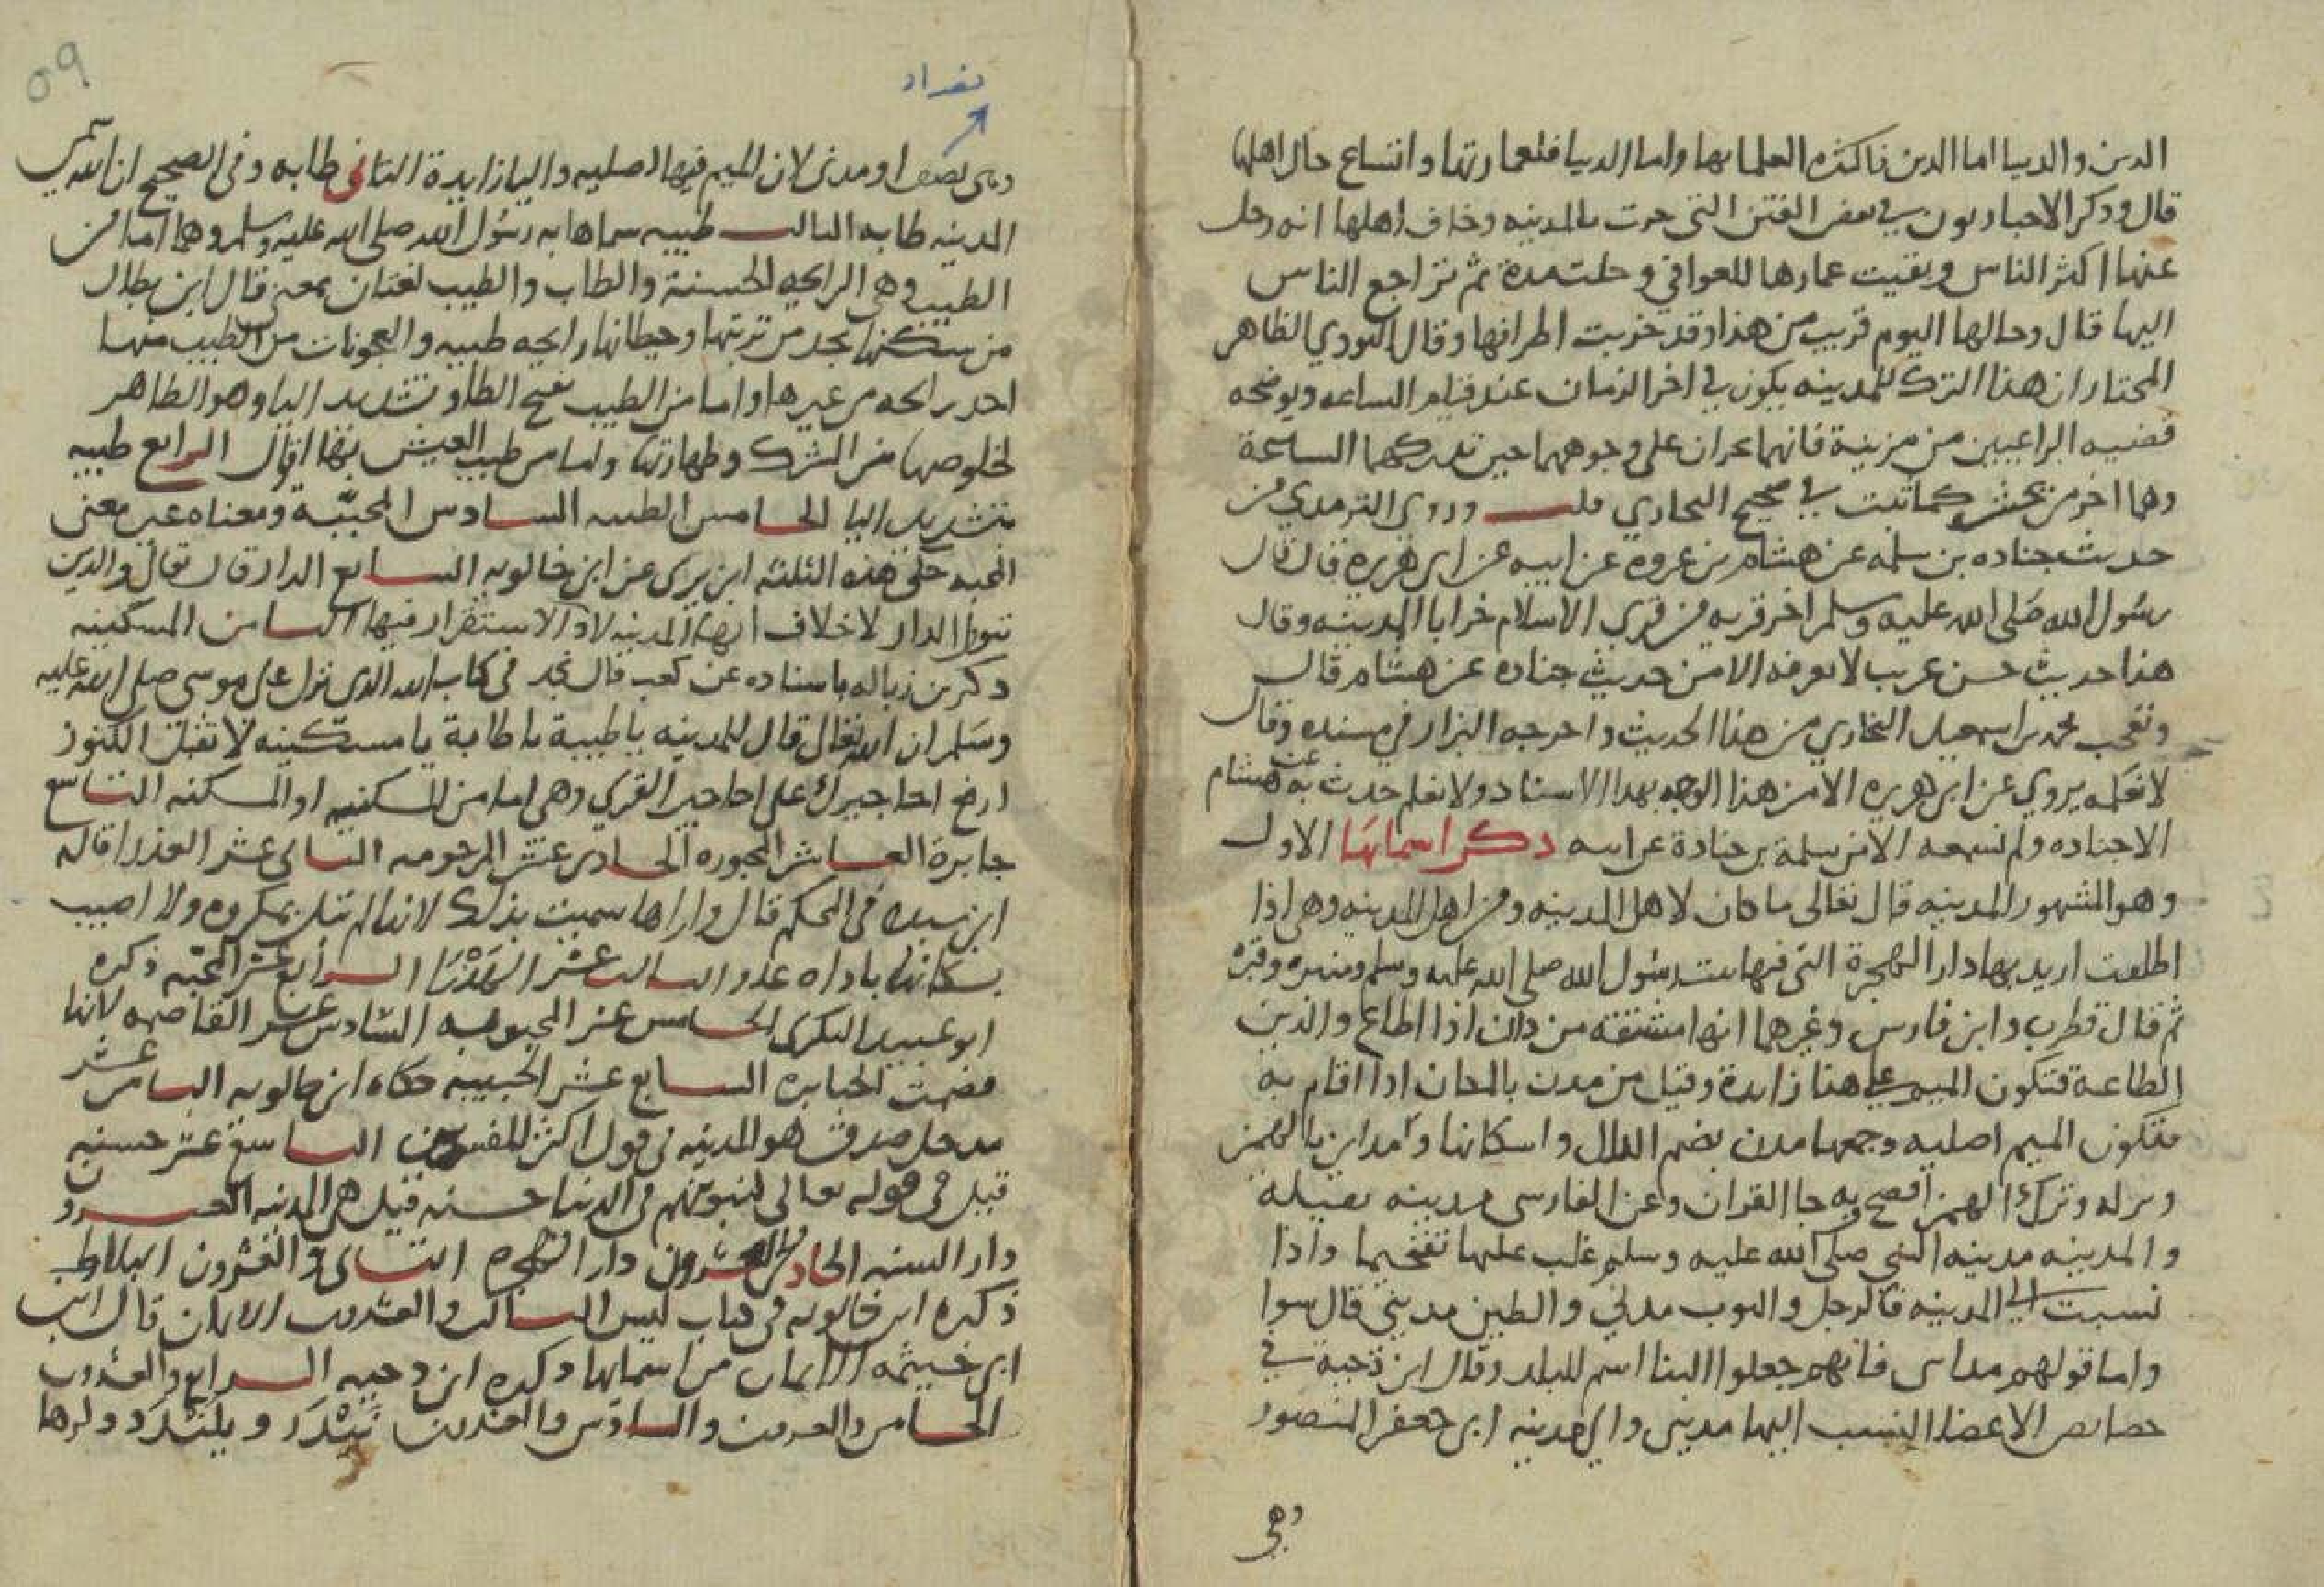 الدين والدنيا اما الدين فلكثره العلما بها واما الدنيا فلعمارتها واتساع حال اهلها
قال وذكر الاخباريون في بعض الفتن التي جرت بالمدينه وخاف اهلها انه رحل
عنها اكثر الناس وبقيت ثمارها للعوافي وخلت مدة ثم تراجع الناس
اليها قال وحالها اليوم قريب من هذا وقد خربت اطرافها وقال النووي الظاهر
المختار ان هذا الترك للمدينه يكون في اخر الزمان عند قيام الساعه ويوضحه
قضيه الراعيين من مزينة فانهما يخران على وجوههما حين تدركهما الساعة
وهما اخر من يحشر كما ثبت في صحيح البخاري قلت وروى الترمذي من
حديث جناده بن سلمه عن هشام بن عروه عن ابيه عن ابي هريره قال قال
رسول الله صلى الله عليه وسلم اخر قريه من قرى الاسلام خرابا المدينه وقال
هذا حديث حسن غريب لا نعرفه الا من حديث جناده عن هشام قال
وتعجب محمد بن اسمعيل البخاري من هذا الحديث واخرجه البزار في مسنده وقال
لا نعلمه يروي عن ابي هريره الا من هذا الوجه بهذا الاسناد ولا نعلم حدث به عن هشام
الا جناده ولم نسمعه الا من سلمة بن جنادة عن ابيه ذكر اسمائها الاول
وهو المشهور المدينه قال تعالى ما كان لاهل المدينه ومن اهل المدينه وهي اذا
اطلقت اريد بها دار الهجرة التي فيها بيت رسول الله صلى الله عليه وسلم ومنبره وقبره
ثم قال قطرب وابن فارس وغيرهما انها مشتقه من دان اذا اطاع والدين
الطاعة فتكون الميم على هذا زايدة وقيل من مدن بالمكان اذا اقام به
فتكون الميم اصليه وجمعها مدن بضم الدال واسكانها ومداين بالهمز
وتركه وترك الهمز افصح وبه جا القران وعن الفارسي مدينه فعيلة
والمدينه مدينه النبي صلى الله عليه وسلم غلب عليها تفخيما واذا
نسبت الى المدينه فالرجل والثوب مدني والطين مديني قال سوا
واما قولهم مداىى فانهم جعلوا البنا اسم للبلد وقال ابن دحية في
خصايص الاعضا النسب اليها مديني والى مدينه ابي جعفر المنصور
وهي
09
بغداد
وهي بغداد مدني لان الميم فيها اصليه واليا زايدة الثاني طابه وفي الصحيح ان الله سمى
المدينه طابه الثالث طيبه سماها به رسول الله صلى الله عليه وسلم وهما اما من
الطيب وهي الرايحه الحسنة والطاب والطيب لغتان بمعنى قال ابن بطال
من سكنها يجد من تربتها وحيطانها رايحه طيبه والعجونات من الطيب منها
احد رايحه من غيرها واما من الطيب بفتح الطا وتشديد اليا وهو الطاهر
لخلوصها من الشرك وطهارتها واما من طيب العيش بها اقوال الرابع طيبه
بتشديد اليا الخامس الطيبه السادس المحبّبة ومعناه عن معنى
المحبه حكى هذه الثلثه ابن بري عن ابن خالويه السابع الدار قال تعالى والذين
تبوؤا الدار لا خلاف انها المدينه لان الاستقرار فيها الثامن المسكينه
ذكر بن زباله باسناده عن كعب قال نجد في كتاب الله الذي نزل على موسى صلى الله عليه
وسلم ان الله تعالى قال للمدينه يا طيبة يا طابة يا مسكينه لا تقبلي الكنوز
ارفع احاجيرك على احاجير القرى وهي اما من السكينه او المسكنه التاسع
جابرة العاشر المجبوره الحادي عشر المرحومه الثاني عشر العذرا قاله
ابن سيده في المحكم قال واراها سميت بذلك لانها لم تنل بمكروه ولا اصيب
سكانها باداه عدر الثالث عشر الهذرا الرابع عشر المحبّه ذكره
ابو عبيد البكري الخامس عشر المحبوبه السادس عشر القاصمه لانها
قصمت الجبابره السابع عشر الحبيبه حكاه ابن خالويه الثامن عشر
مدخل صدق هو المدينه في قول اكثر المفسرين التاسع عشر حسنه
قيل في قوله تعالى لنبوئنهم في الدنيا حسنه قيل هي المدينه العشرون
دار السنه الحادي والعشرون دار الهجره الثاني والعشرون البلاط
ذكره ابن خالويه في كتاب ليس الثالث والعشرون الايمان قال ابن
ابي خيثمه الايمان من اسمائها ذكره ابن دحيه الرابع والعشرون
الخامس والعشرون والسادس والعشرون تَنْدَر ويَنْدَر